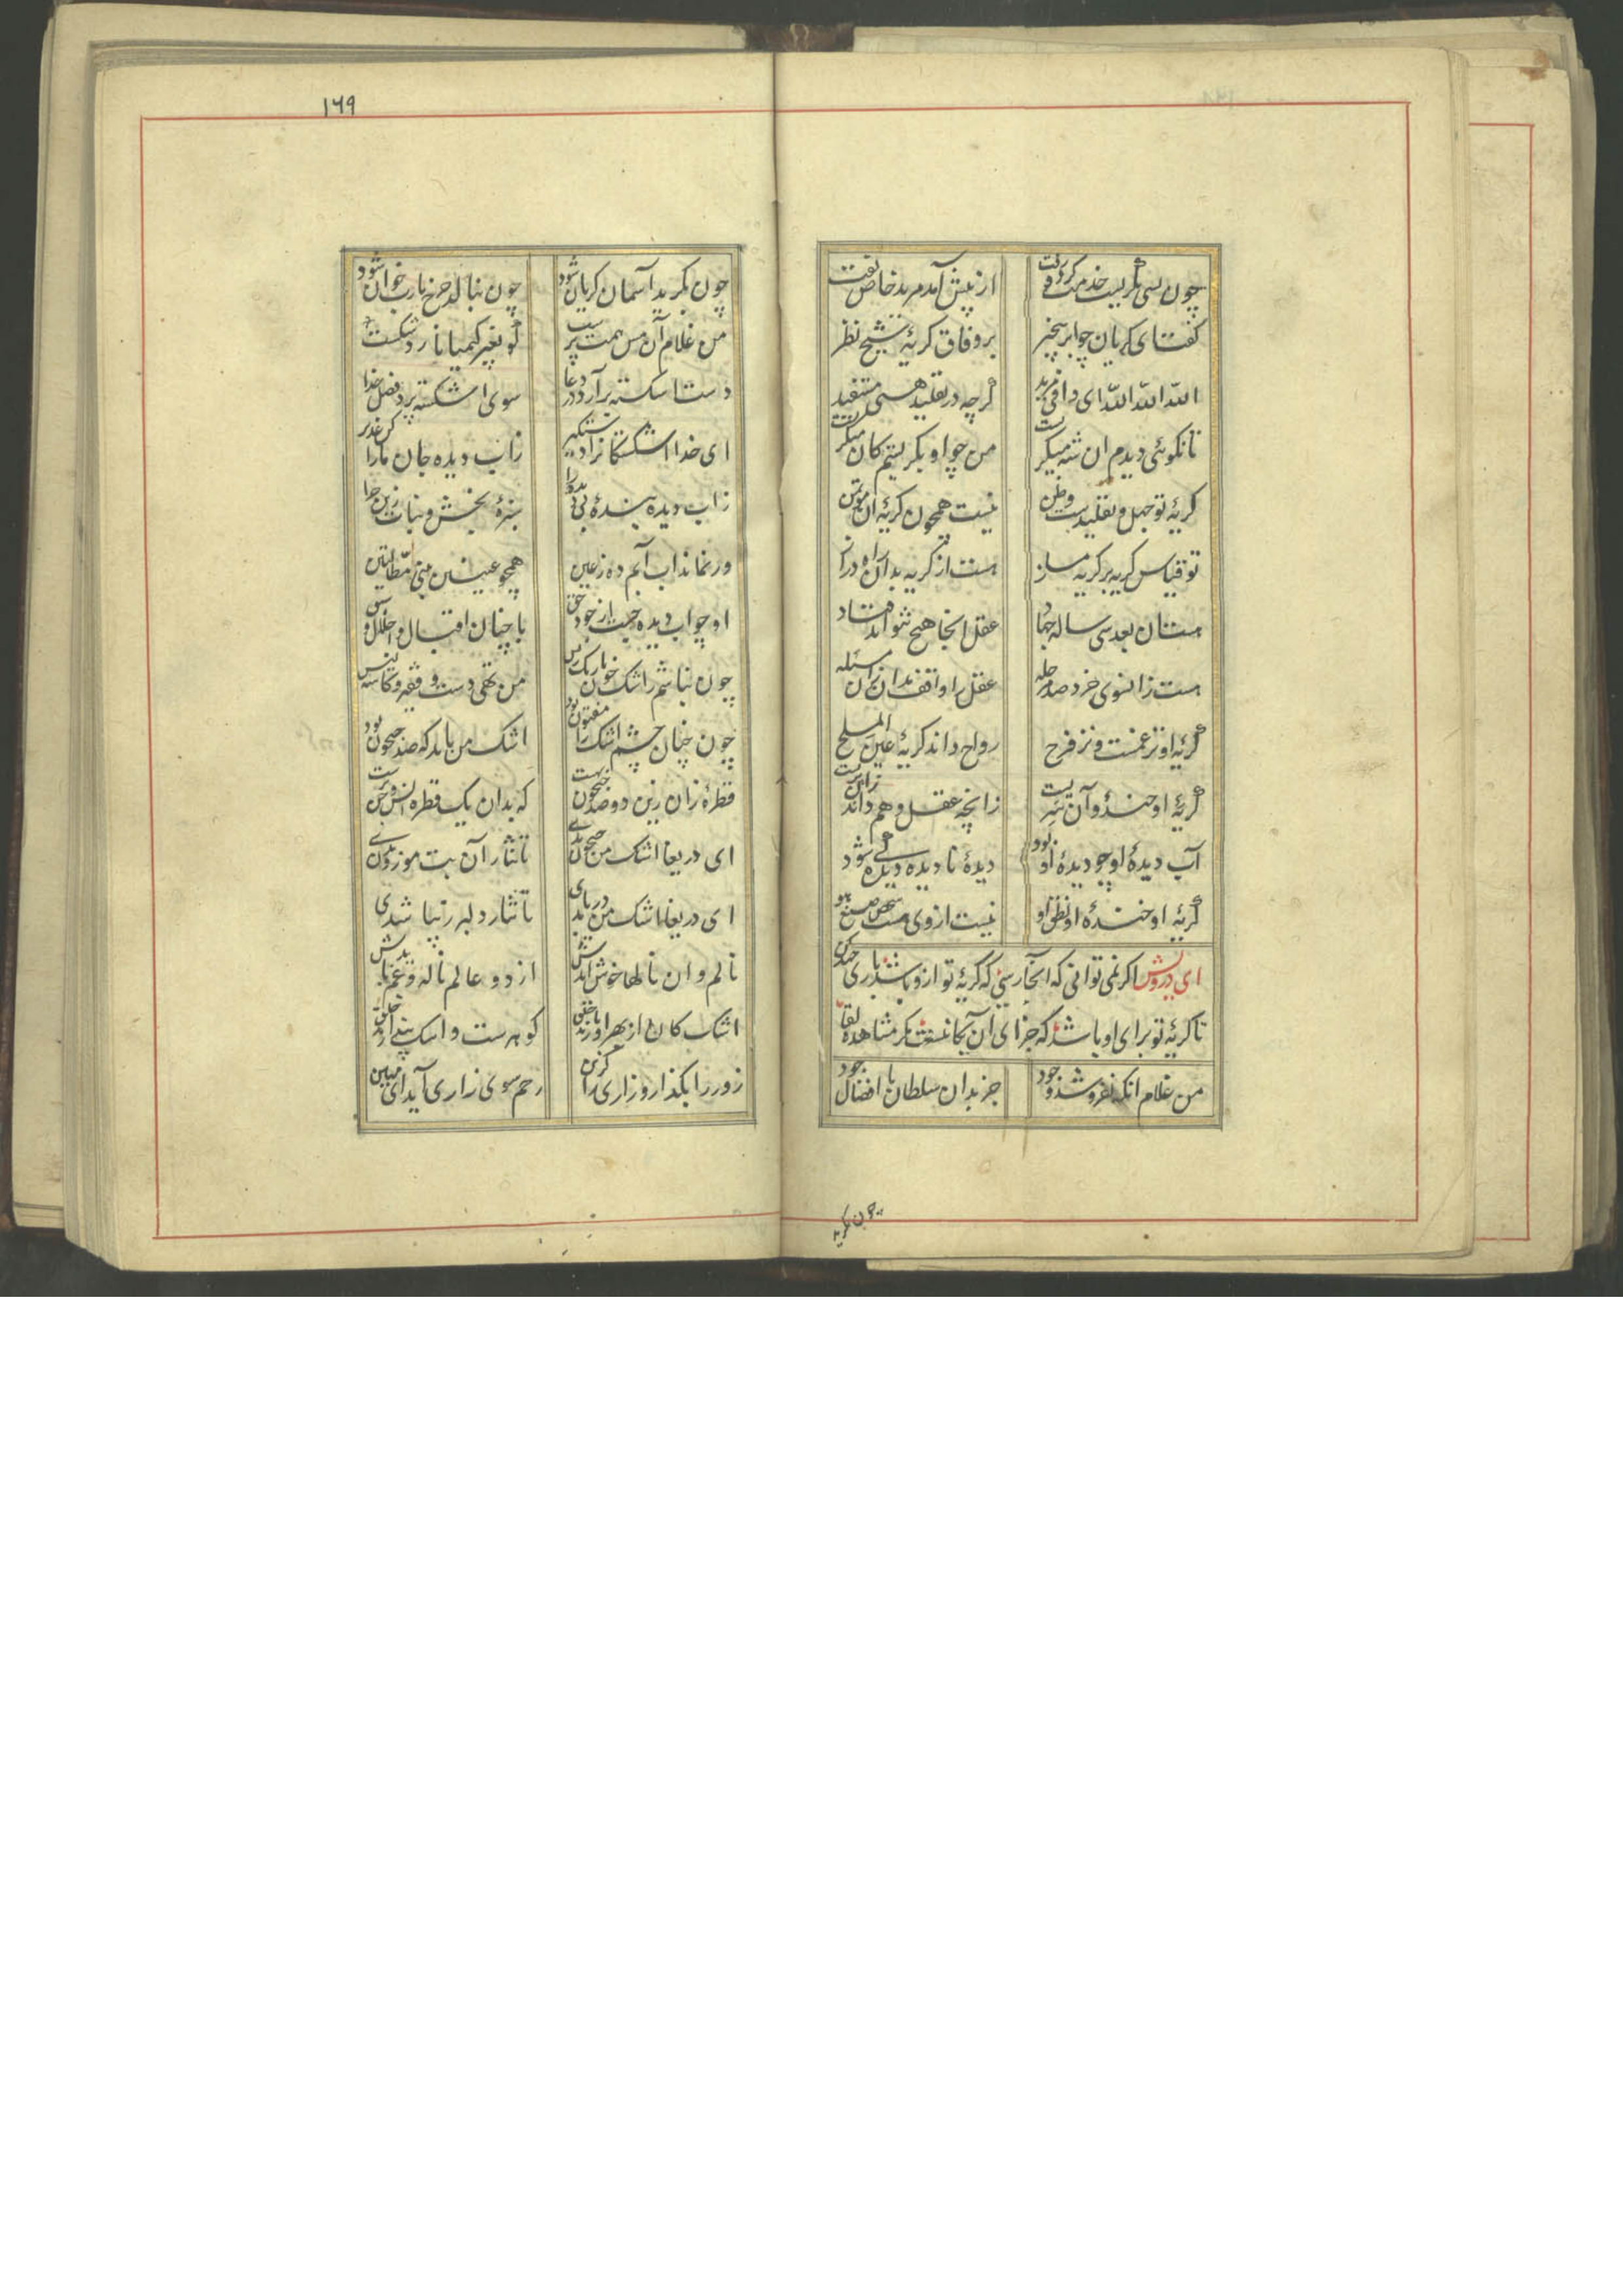 چون بسی بگریست خدمت کرد و رفت
از پیش آمد مرید خاص تفت
گفتا ای گریان چو ابر بیخبر
بر وفاق گریهٔ شیخ نظر
الله الله الله ای وافی مرید
گرچه در تقلید هستی مستفید
تا نگوئی دیدم ان شه میگریست
من چو او بگریستم کان منکریست
گریهٔ تو جهل و تقلیدست و ظن
نیست همچون گریهٔ ان مؤتمن
تو قیاس گریه بر گریه مساز
هست از گریه بدان راه دراز
هست ان بعد سی ساله جهاد
عقل انجا هیچ نتواند فتاد
هست زانسوی خرد صد مرحله
عقل را واقف مدان زان مسئله
گریهٔ او نز غمست و نز فرح
روح داند گریهٔ عین الملح
گریهٔ او خندهٔ او آن سریست
زانچه عقل و وهم داند زان بریست
آب دیدهٔ او چو دیدهٔ او بود
دیدهٔ نادیده دیده کی شود
گریهٔ او خندهٔ او نطق او
نیست از وی هست محض صنع هو
ای درویش اگر نمی توانی که انجا رسی که گریهٔ تو ازو باشد باری جهد کن
تا گریهٔ تو برای او باشد که جزای ان آنجا نیست مگر مشاهده لقا
من غلام انکه نفروشد وجود
جز بدان سلطان با افضال و جود
چون بگرید
١٦٩
چون بگرید آسمان گریان شود
چون بنالد چرخ یارب خوان شود
من غلام آن مس همت پرست
کو بغیر کیمیا نارد شکست
دست اشکسته برآور در دعا
سوی اشکسته پرد فضل خدا
ای خدا اشکستگانرا دستگیر
زاب دیده جان مارا
زاب دیده بندهٔ بی دید را
سبزهٔ بخش و نبات زین چرا
ور نماند اب آبم ده ز عین
همچو عینین نبی هطالتین
او چو اب دیده جست از جود حق
با چنان اقبال و اجلال و سبق
چون نباشم ز اشک خون باریک ریس
من تهی دست و قفیر کاسه لیس
چون چنان چشم اشک را مفتون بود
اشک من باید که صد جیحون بود
قطرهٔ زان زین دو صد جیحون بهست
که بدان یک قطره انس و جن برست
ای دریغا اشک من جیحون بدی
تا نثار آن بت موزون بدی
ای دریغا اشک من دریا بدی
تا نثار دلبر زیبا شدی
نالم و ان نالها خوش ایدش
از دو عالم ناله و غم بایدش
اشک کان از بهر او بارند خلق
گوهرست و اشک پندارند خلق
زور را بگذار و زاری را گزین
رحم سوی زاری آید ای مهین